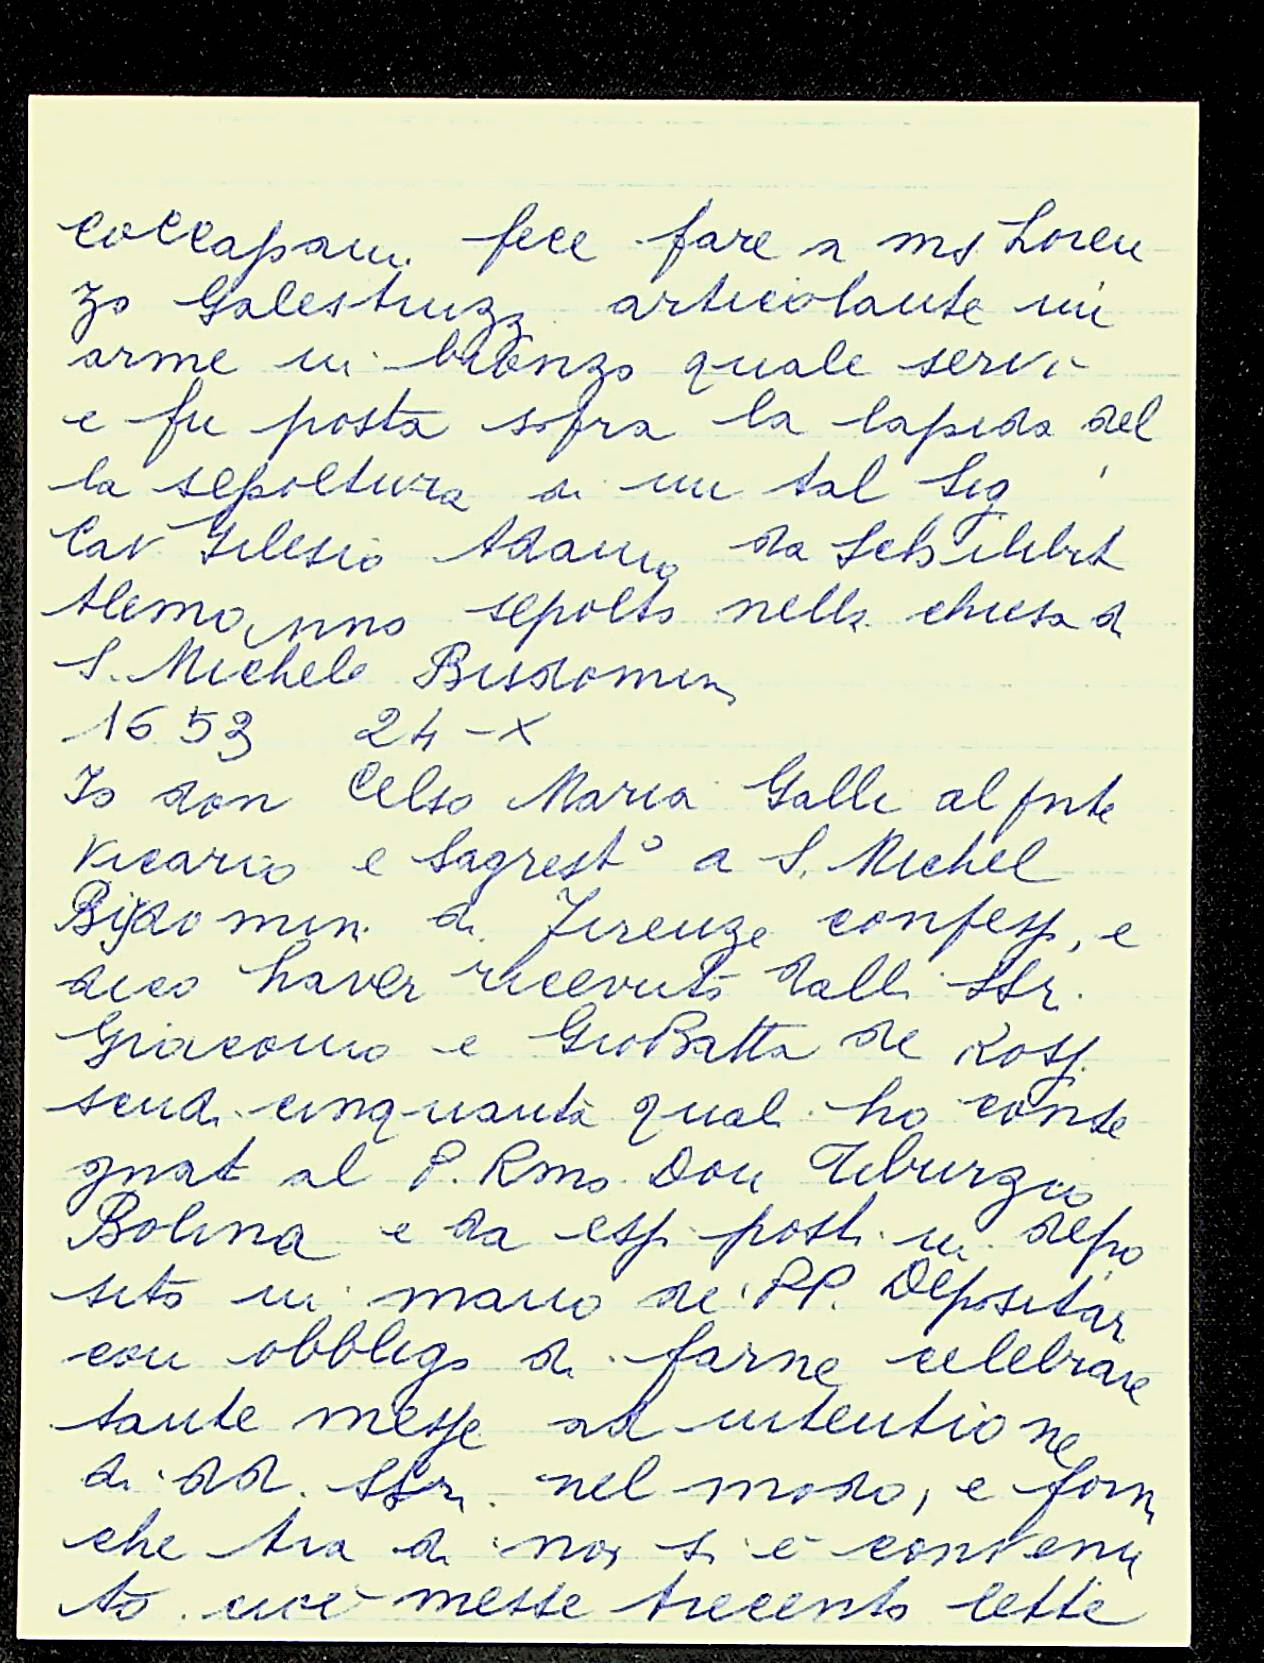 Coccapani fece fare a ms Loren
zo Galestruzzi articolante un'
arme in bronzo quale servì
e fu posta sopra la lapida del
la sepoltura di un tal Sig
Cav Gilesio Adamo da
Alemanno sepolto nella chiesa di
S. Michele Bisdomini
1653 24-X
Io don Celso Maria Galli al pnte
Vicario e Sagrest° a S. Michel
Bisdomini di Firenze confess, e
dico haver ricevuto dalli SSri.
Giacomo e GioBatta de Rossi
scudi cinquanta quali ho conse
gnati al P. Rmo Don Tiburzio
Bolina e da essi posti in depo
sito in mano de' PP. Depositari
con obbligo di farne celebrare
tante messe ad intentione
di dd. SSri. nel modo, e form
che tra di noi si è convenu
to cioè messe trecento lette